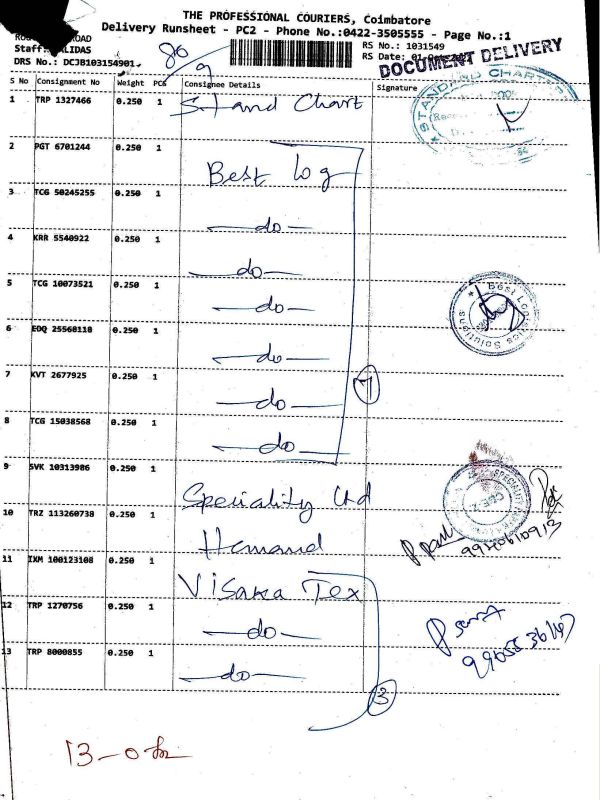 THE PROFESSIONAL COURIERS, Coimbatore
Delivery Runsheet - PC2 - Phone No.:0422-3505555 - Page No.:1
ROAD
Staff: ALIDAS
RS No.: 1031549
RS Date: 01
DRS No.: DCJB103154901.
DOCUMENT DELIVERY
80
9
S No Consignment No Weight PCS Consignee Details Signature
1 TRP 1327466 0.250 1 Stand Chart
STANDARD CHARTE
2 PGT 6701244 0.250 1 Best log
3 TCG 50245255 0.250 1 do
4 KRR 5540922 0.250 1 do
5 TCG 10073521 0.250 1 do
Best Logistics Solutions
6 EDQ 25560110 0.250 1 do
7 KVT 2677925 0.250 1 do
7
8 TCG 15038568 0.250 1 do
9 SVK 10313986 0.250 1 Speciality Ltd
SPECIALITY
10 TRZ 113260738 0.250 1 Hemand
9940610913
11 IXM 100123108 0.250 1 Visaka Tex
12 TRP 1270756 0.250 1 do
13 TRP 8000855 0.250 1 do
3
13-0